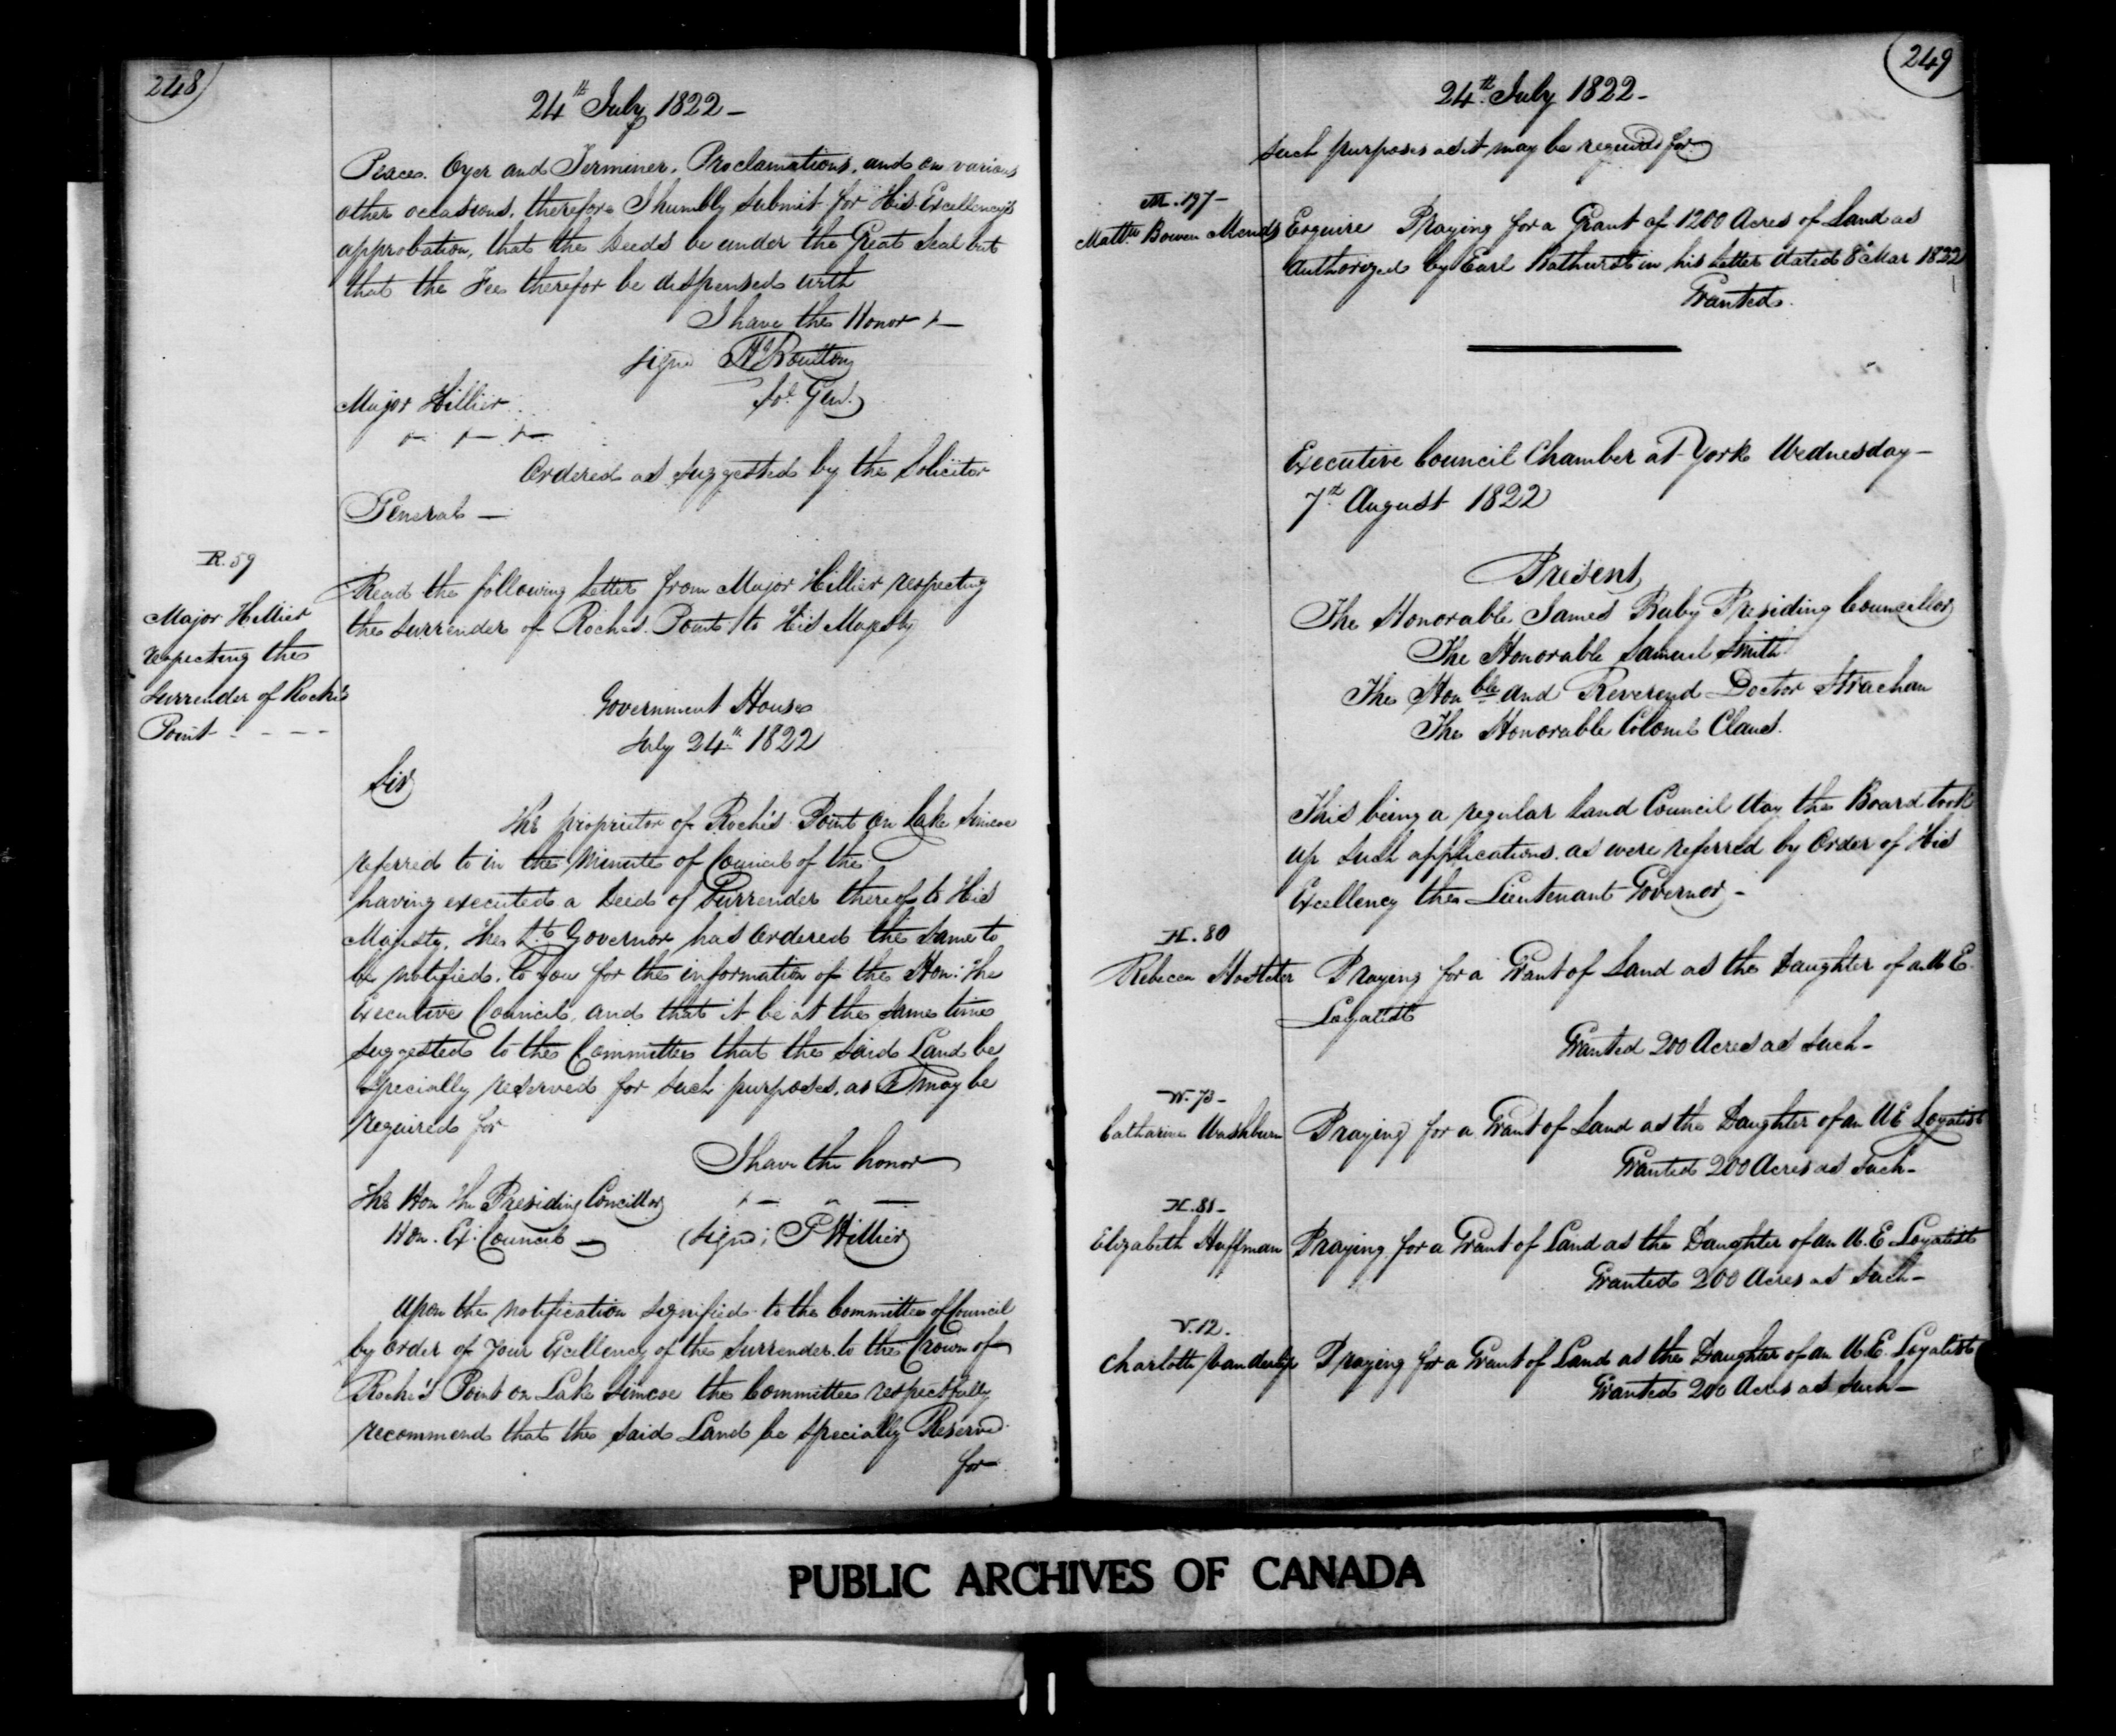 248
24th July 1822 —
Peace. Oyer and Terminer. Proclamations. and on various
other occasions. therefore I humbly submit for His Excellency's
approbation, that the Deeds be under the Great Seal but
that the Fee therefor be dispensed with
I have the Honor
Signd H Boulton
Sol Genl.
Major Hillier
Ordered as suggested by the Solicitor
General —
R. 59
Major Hillier
respecting the
Surrender of Roche's
Point - - - -
Read the following Letter from Major Hillier respecting
the surrender of Roches. Point to His Majesty
Government House
July 24th 1822
Sir
The proprietor of Roche's Point on Lake Simcoe
referred to in the Minute of Council of the
having executed a Deed of Surrender thereof to His
Majesty. The Lt Governor has ordered the same to
be notified. to you for the information of the Hon: The
Executive Council, and that it be at the same time
suggested to the Committee that the said Land be
specially reserved for such purposes. as it may be
required for
I have the honor
The Hon The Presiding Concillor
Hon. Ex: Council —
(Signd; P Hillier
Upon the notification signified to the Committee of Council
by order of Your Excellency of the Surrender. to the Crown of
Roche's Point on Lake Simcoe the Committee respectfully
recommend that the said Land be specially Reserved
for
249
24th July 1822 -
such purposes as it may be required for
M. 197 -
Matthw Bowen Mends Esquire Praying for a Grant of 1200 Acres of Land as
authorized by Earl Bathurst in his Letter dated 8th Mar 1822
Granted.
Executive Council Chamber at York Wednesday —
7th August 1822
Present
The Honorable James Baby Presiding Councillor
The Honorable Samuel Smith
The Honble and Reverend Doctor Strachan
The Honorable Colonel Claus.
This being a regular Land Council day the Board took
up such applications. as were referred by order of His
Excellency the Lieutenant Governor -
H. 80
Rebecca Hostteter Praying for a Grant of Land as the Daughter of a U E
Loyalist
Granted 200 Acres as such -
W. 73 -
Catharine Washburn Praying for a Grant of Land as the Daughter of an U E Loyalist
Granted 200 Acres as such -
H. 81 -
Elizabeth Huffman Praying for a Grant of Land as the Daughter of an U. E Loyalist
Granted 200 Acres as such -
V. 12.
Charlotte Vanderlip Praying for a Grant of Land as the Daughter of an U. E. Loyalist
Granted 200 Acres as such —
PUBLIC ARCHIVES OF CANADA